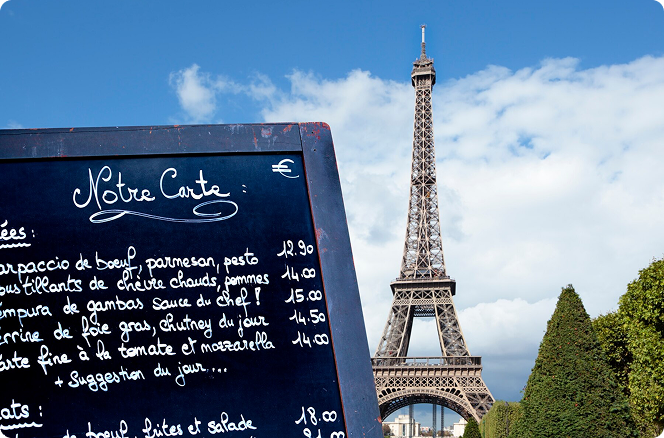 Notre Carte :
€
ées :
arpaccio de bœuf, parmesan, pesto 12.90
oustillants de chèvre chauds, pommes 14.00
empura de gambas sauce du chef ! 15.00
errine de foie gras, chutney du jour 14.50
arte fine à la tomate et mozzarella 14.00
+ Suggestion du jour....
lats :
de bœuf, frites et salade 18.00